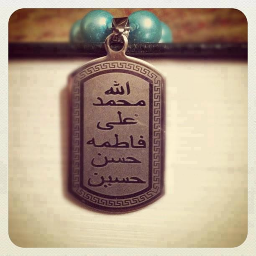 الله
محمد
على
فاطمه
حسن
حسين